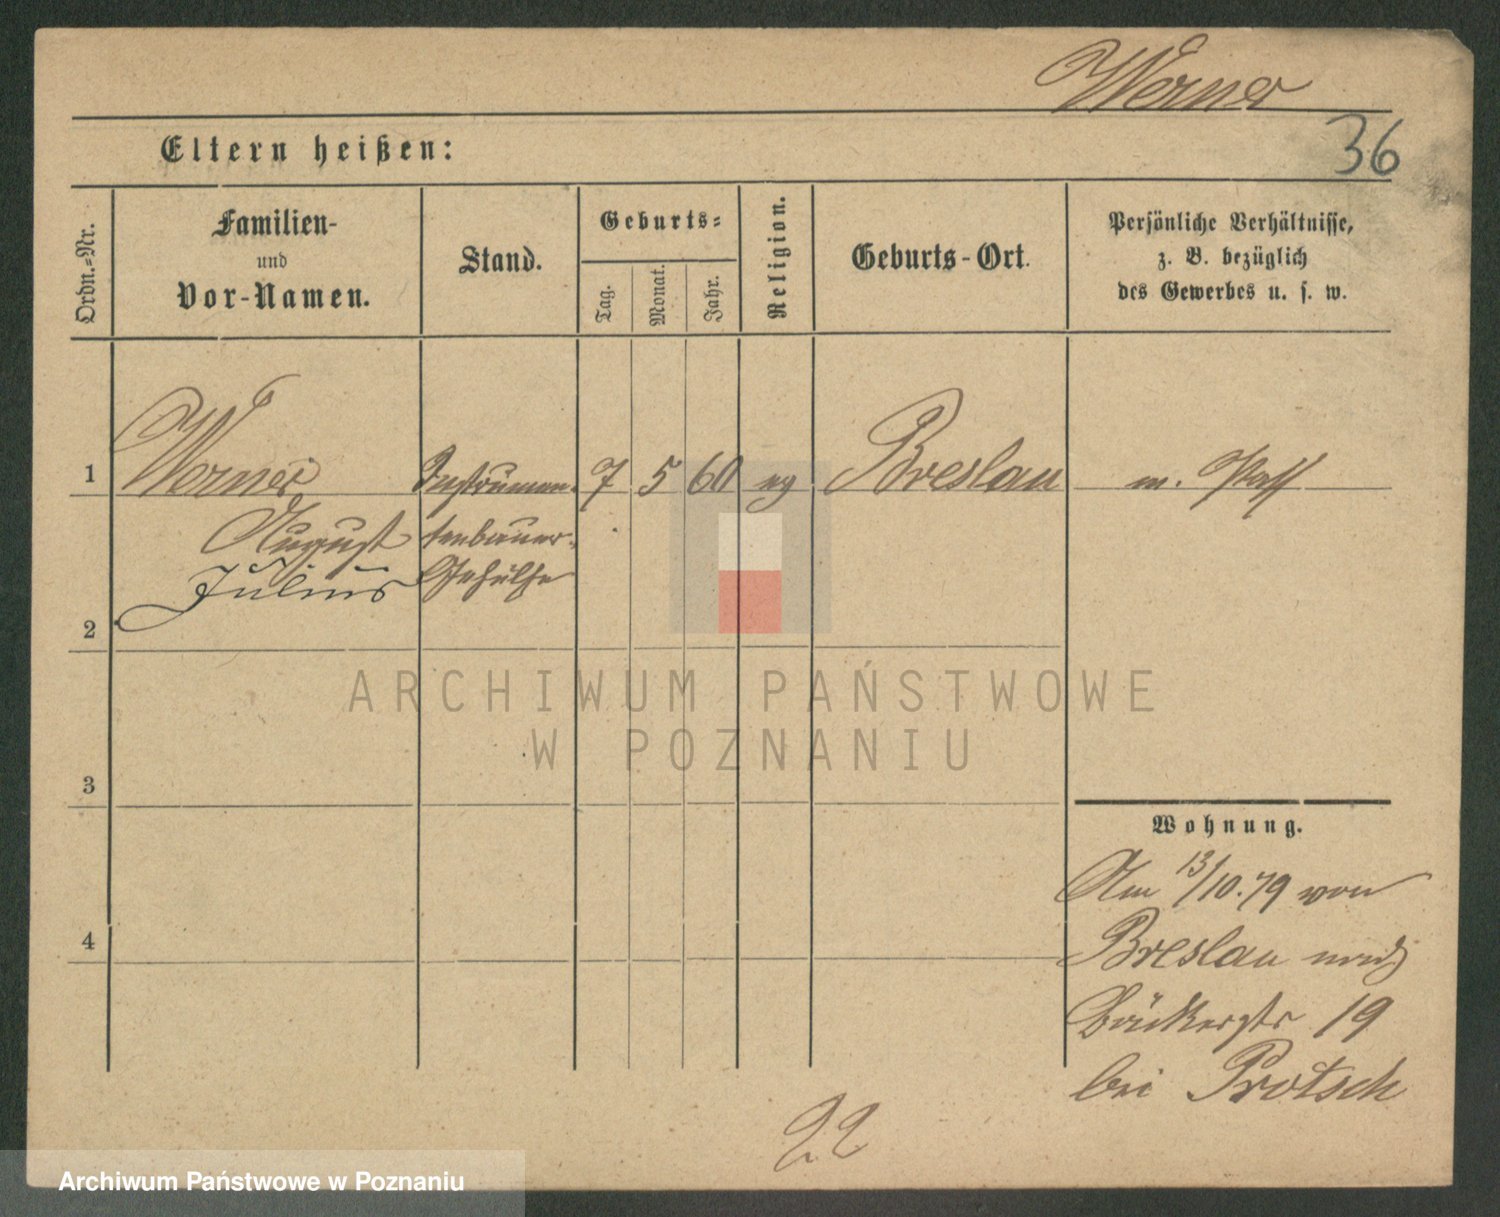 Werner
36
Eltern heißen:
Ordn.-Nr.
Familien-
und
Vor-Namen.
Stand.
Geburts-
Tag.
Monat.
Jahr.
Religion.
Geburts-Ort.
Persönliche Verhältnisse,
z. B. bezüglich
des Gewerbes u. s. w.
1
Werner
Instrumen-
7
5
60
ev
Breslau
m. Paß
August
tenbauer-
Julius
Gehülfe
2
ARCHIWUM PAŃSTWOWE
W POZNANIU
3
Wohnung.
Am 13/10.79 von
4
Breslau nach
Bäckerstr 19
bei Protsch
22
Archiwum Państwowe w Poznaniu